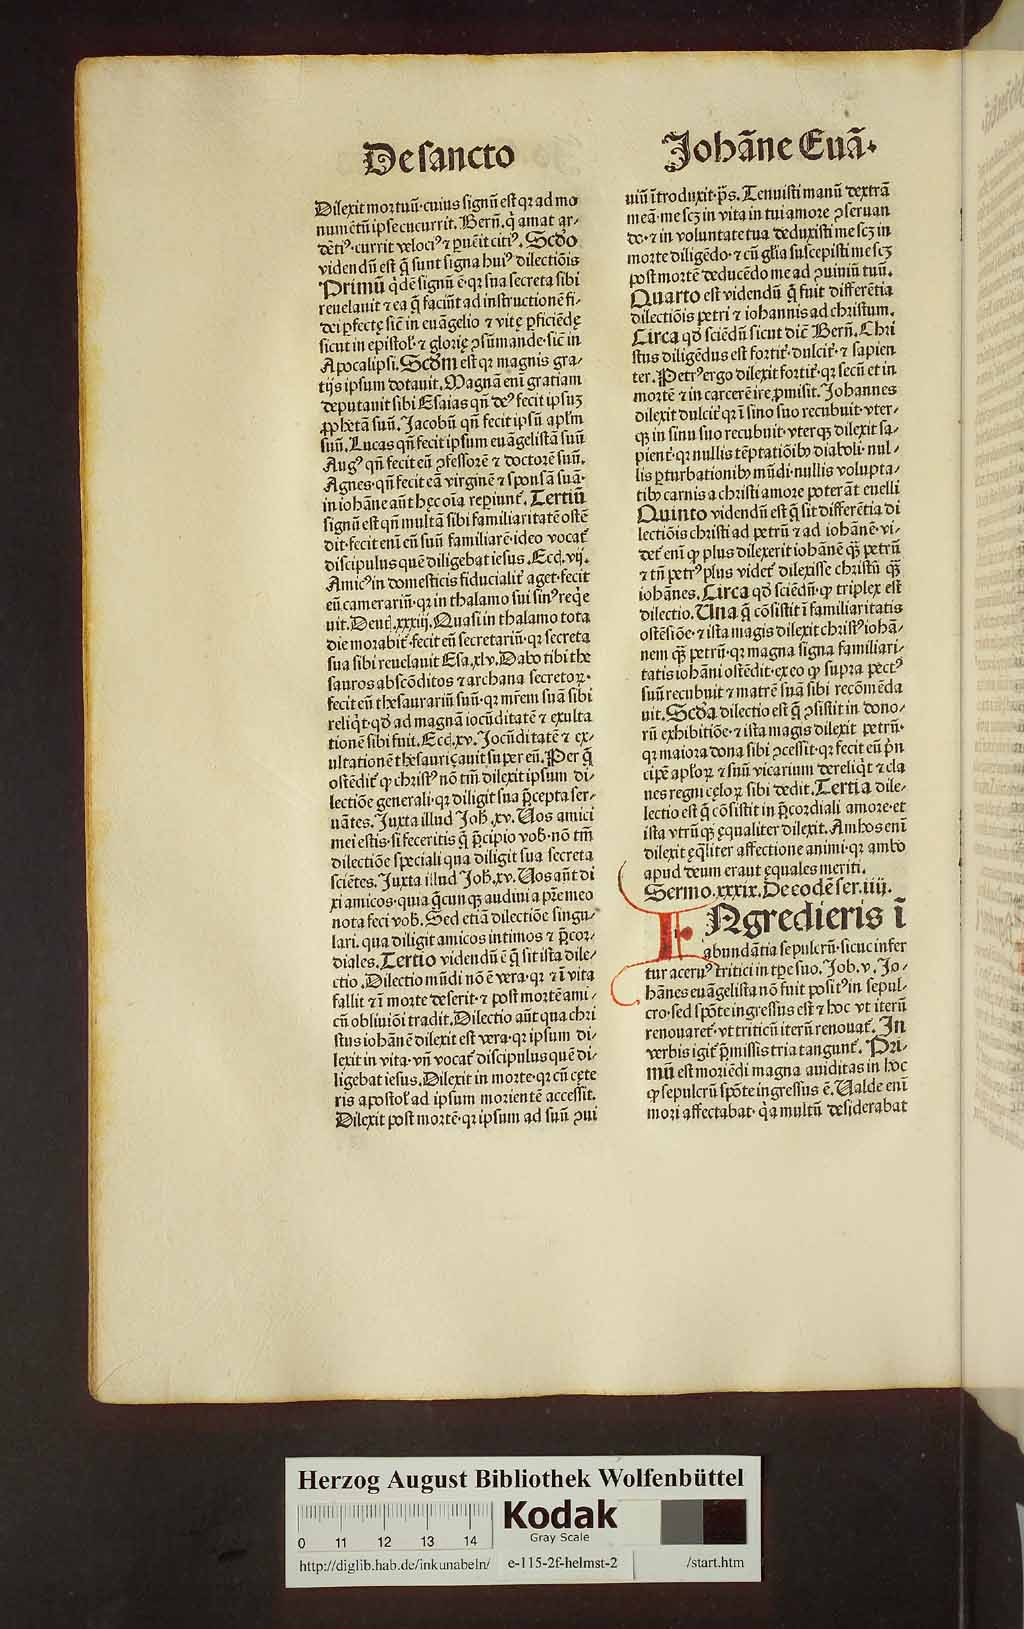 De sancto
Dilexit mortuū·cuius signū est qꝛ ad mo
numētū ipse cucurrit. Berñ. q̇ amat ar-
dētiꝰ·currit velociꝰ ⁊ ꝑueīt citiꝰ. Scďo
videndū est q̄ sunt signa huiꝰ dilectiōis
Primū q̇dē signū ē·qꝛ sua secreta sibi
reuelauit ⁊ ea q̄ faciūt ad instructionē fi-
dei ꝑfectę sič in euāgelio ⁊ vitę ꝑficiēdę
sicut in epistol̓·⁊ glorię ꝯsūmande·sič in
Apocalipsi. Scďm est qꝛ magnis gra-
tijs ipsum dotauit. Magnā enī gratiam
deputauit sibi Esaias qn̄ deꝰ fecit ipsuꝫ
ꝓphetā suū. Jacobū qn̄ fecit ipsū apľm
suū. Lucas qn̄ fecit ipsum euāgelistā suū
Augꝰ qn̄ fecit eū ꝯfessorē ⁊ doctorē suū.
Agnes·qn̄ fecit eā virginē ⁊ sponsā suā·
in iohāne aūt hęc oīa reꝑiunt̄. Tertiū
signū est qn̄ multā sibi familiaritatē ostē
dit·fecit enī eū suū familiarē·ideo vocat̄
discipulus quē diligebat iesus. Ecc̄. vij.
Amicꝰ in domesticis fiducialit̓ aget·fecit
eū camerariū·qꝛ in thalamo sui sinꝰ req̇e
uit. Deut̄. xxxiij. Quasi in thalamo tota
die morabit̄·fecit eū secretariū·qꝛ secreta
sua sibi reuelauit Esa. xlv. Dabo tibi the
sauros abscōditos ⁊ archana secretoꝝ·
fecit eū thesaurariū suū·qꝛ mr̄em suā sibi
reliq̇t·qď ad magnā iocūditatē ⁊ exulta
tionē sibi fuit. Ecc̄. xv. Jocūditatē ⁊ ex-
ultationē thesauriçauit super eū. Per q̄
ostēdit̄ ꝙ christꝰ nō tm̄ dilexit ipsum di-
lectiōe generali·qꝛ diligit sua p̄cepta ser-
uātes. Juxta illud Joh. xv. Uos amici
mei estis·si feceritis q̄ p̄cipio vob̓·nō tm̄
dilectiōe speciali qua diligit sua secreta
sciētes. Juxta illud Joh. xv. Uos aūt di
xi amicos·quia q̄cunqꝫ audiui a pr̄e meo
nota feci vob̓. Sed etiā dilectiōe singu-
lari. qua diligit amicos intimos ⁊ p̄cor-
diales. Tertio videndū ē q̄ sit ista dile-
ctio. Dilectio mūdi nō ē vera·qꝛ ⁊ ī vita
fallit ⁊ ī morte deserit·⁊ post mortē ami-
cū obliuiōi tradit. Dilectio aūt qua chri
stus iohānē dilexit est vera·qꝛ ipsum di-
lexit in vita·vn̄ vocat̄ discipulus quē di-
ligebat iesus. Dilexit in morte·qꝛ cū cęte
ris apostol̓ ad ipsum morientē accessit.
Dilexit post mortē·qꝛ ipsum ad suū ꝯui
Johāne Euā·
uiū ītroduxit·p̄s. Tenuisti manū dextrā
meā·me scꝫ in vita in tui amore ꝯseruan
do·⁊ in voluntate tua deduxisti me scꝫ in
morte diligēdo·⁊ cū gľia suscepisti me scꝫ
post mortē deducēdo me ad ꝯuiuiū tuū.
Quarto est videndū q̄ fuit differētia
dilectiōis petri ⁊ iohannis ad christum.
Circa qď sciēdū sicut diē Berñ. Chri
stus diligēdus est fortit̓·dulcit̓·⁊ sapien
ter. Petrꝰ ergo dilexit fortit̓·qꝛ secū et in
mortē ⁊ in carcerē ire ꝓmisit. Johannes
dilexit dulcit̓ qꝛ ī sino suo recubuit·vter-
qꝫ in sinu suo recubuit·vterqꝫ dilexit sa-
pient̓·qꝛ nullis tēptatiōibꝰ diaboli·nul-
lis ꝑturbationibꝰ mūdi·nullis volupta-
tibꝰ carnis a christi amore poterāt euelli
Quinto videndū est q̄ sit differētia di
lectiōis christi ad petrū ⁊ ad iohānē·vi-
det̄ enī ꝙ plus dilexerit iohānē qꝫ̄ petrū
⁊ tn̄ petrꝰ plus videt̄ dilexisse christū qꝫ̄
iohānes. Circa qď sciēdū·ꝙ triplex est
dilectio. Una q̄ cōsistit ī familiaritatis
ostēsiōe·⁊ ista magis dilexit christꝰ iohā-
nem qꝫ̄ petrū·qꝛ magna signa familiari-
tatis iohāni ostēdit·ex eo ꝙ supra pectꝰ
suū recubuit ⁊ matrē suā sibi recōmēda
uit. Scďa dilectio est q̄ ꝯsistit in dono-
rū exhibitiōe·⁊ ista magis dilexit petrū·
qꝛ maiora dona sibi ꝯcessit·qꝛ fecit eū p̄n
cipē apľoꝝ ⁊ suū vicarium dereliq̇t ⁊ cla
ues regni cęloꝝ sibi dedit. Tertia dile-
lectio est q̄ cōsistit in p̄cordiali amore·et
ista vtrūqꝫ ęqualiter dilexit. Ambos enī
dilexit ęq̄liter affectione animi·qꝛ ambo
apud deum erant ęquales meriti.
Sermo. xxxix. De eodē ser. iiij.
INgredieris ī
abundātia sepulcrū·sicuc infer
tur aceruꝰ tritici in tp̄e suo. Job. v. Jo-
hānes euāgelista nō fuit positꝰ in sepul-
cro·sed spōte ingressus est ⁊ hoc vt iterū
renouaret̄·vt triticū iterū renouat̄. In
verbis igit̄ p̄missis tria tangunt̄. Pri-
mū est moriēdi magna auiditas in hoc
ꝙ sepulcrū spōte ingressus ē. Ualde enī
mori affectabat·q̇a multū desiderabat
Herzog August Bibliothek Wolfenbüttel
0 11 12 13 14
Kodak
Gray Scale
http://diglib.hab.de/inkunabeln/ e-115-2f-helmst-2 /start.htm